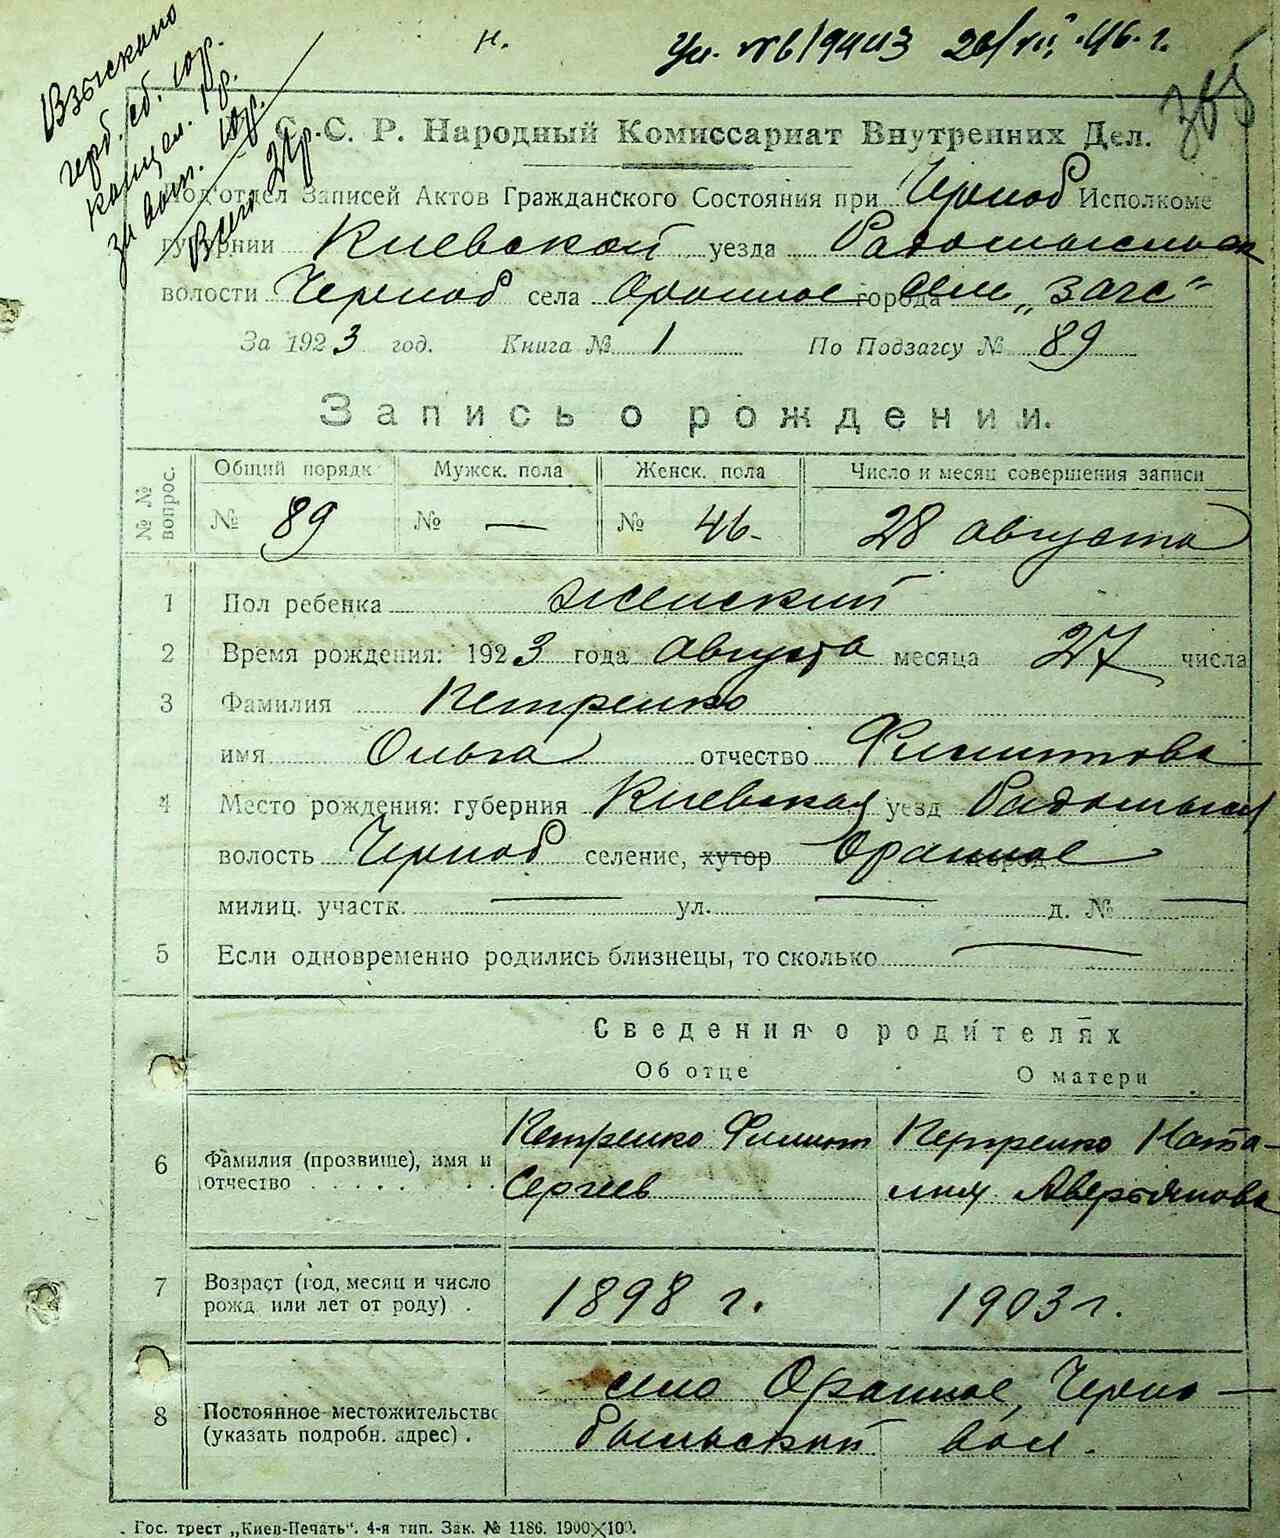 Взыскано
герб. сб. 10р.
канцел. 1р.
за бот. 10р.
Всего 21р.
н.
305
С. С. Р. Народный Комиссариат Внутренних Дел.
Под'отдел Записей Актов Гражданского Состояния при Черноб Исполкоме
губернии Киевской уезда Радомысльск
волости Черноб села Оранное города сел „загс“
За 1923 год. Книга № 1 По Подзагсу № 89
Запись о рождении.
№ № вопрос. Общий порядк Мужск. пола Женск. пола Число и месяц совершения записи
№ 89 № — № 46. 28 августа
1 Пол ребенка женский
2 Время рождения: 1923 года августа месяца 27 числа
3 Фамилия Петренко
имя Ольга отчество Филиптова
4 Место рождения: губерния Киевская уезд Радомысл
волость Черноб селение, хутор Оранное город
милиц. участк. — ул. — д. № —
5 Если одновременно родились близнецы, то сколько —
Сведения о родителях
Об отце О матери
6 Фамилия (прозвище), имя и отчество Петренко Филипт Сергеев Петренко Ната-лия Аверьянова
7 Возраст (год, месяц и число рожд или лет от роду) . 1898 г. 1903 г.
8 Постоянное местожительство (указать подробн. адрес) . село Оранное, Черно-быльской вол.
Гос. трест „Киев-Печать“. 4-я тип. Зак. № 1186. 1900×100.